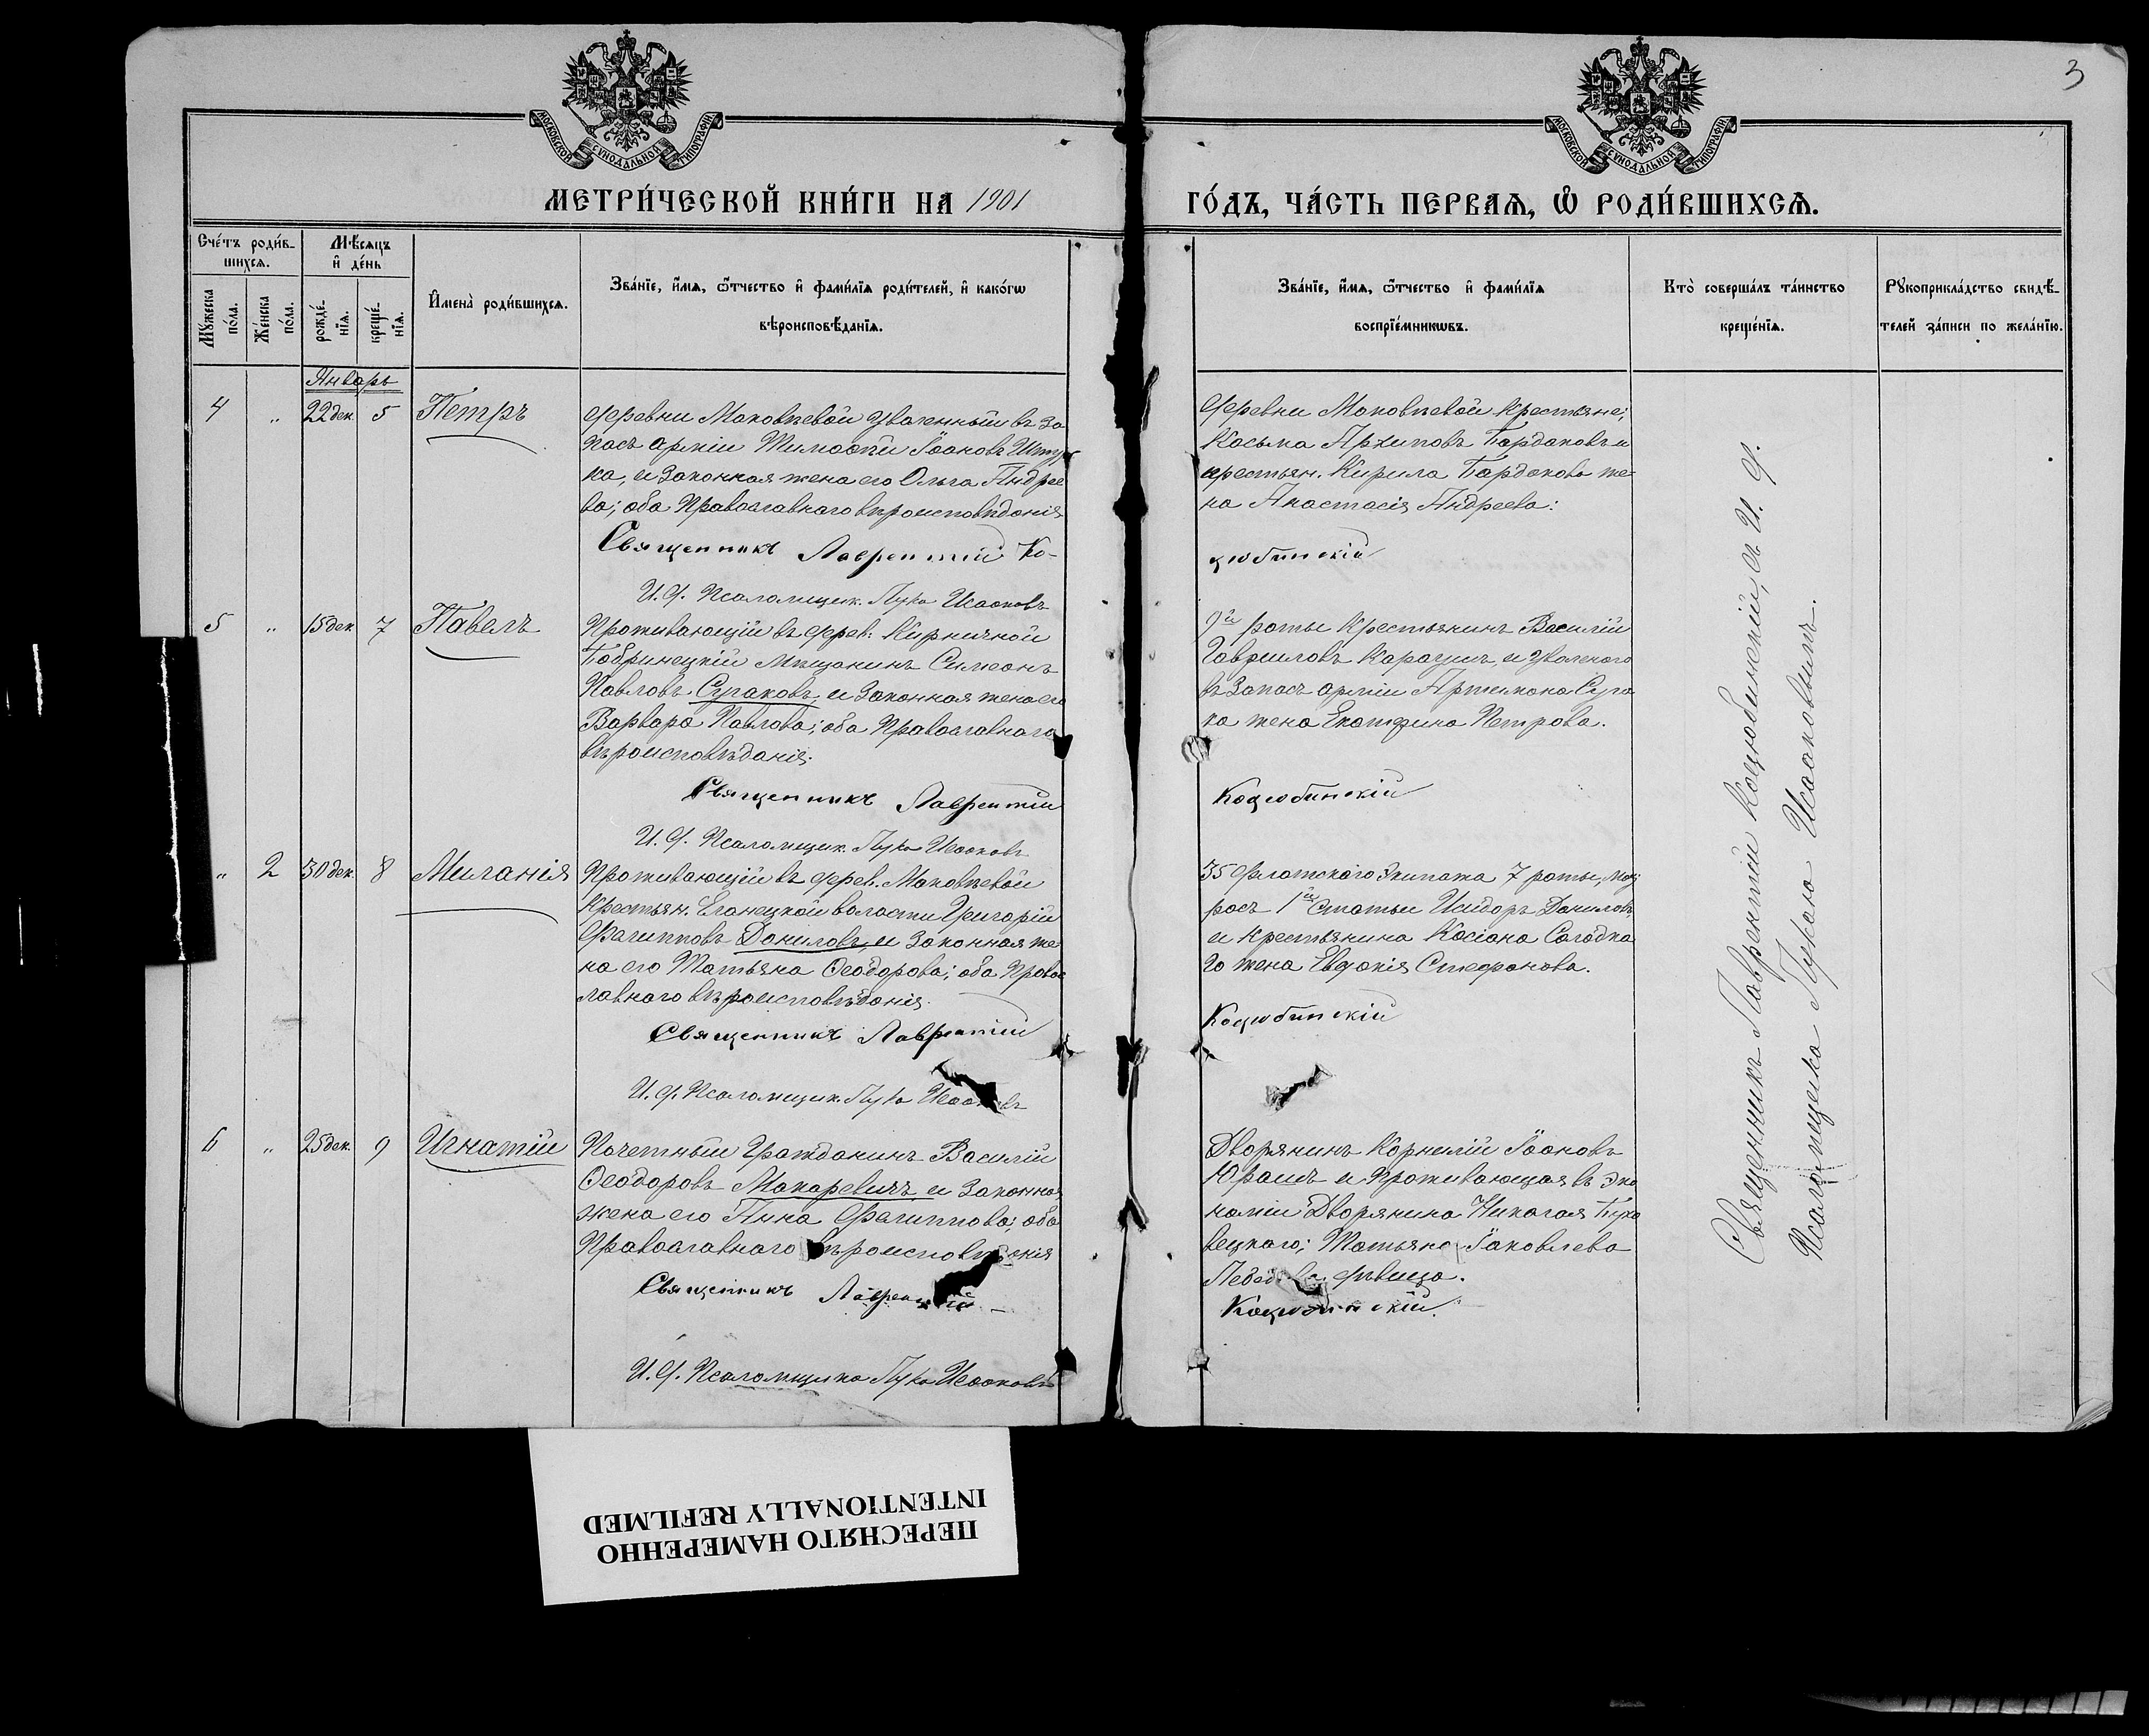 3
МОСКОВСКОЙ СѴНОДАЛЬНОЙ ТИПОГРАФІИ
МОСКОВСКОЙ СѴНОДАЛЬНОЙ ТИПОГРАФІИ
МЕТРИ́ЧЕСКОЙ КНИ́ГИ НА 1901
ГО́ДЪ, ЧА́СТЬ ПЕРВАѦ, Ѡ҆ РОДИ́ВШИХСѦ.
Сче́тъ роди́в-
шихсѧ.
Мꙋ́жеска по́ла.
Же́нска по́ла.
Мѣ́сѧцъ
и҆ де́нь
рожде́-
нїѧ.
креще́-
нїѧ.
И҆мена̀ роди́вшихсѧ.
Зва́нїе, и҆́мѧ, ѻ҆́тчество и҆ фами́лїѧ роди́телей, и҆ како́гѡ
вѣроисповѣ́данїѧ.
Зва́нїе, и҆́мѧ, ѻ҆́тчество и҆ фами́лїѧ
воспрїе́мникѡвъ.
Кто̀ соверша́лъ та́инство
креще́нїѧ.
Рꙋкоприкла́дство свидѣ́-
телей за́писи по жела́нїю.
Январь
4 " 22 дек. 5 Петръ
деревни Маковѣевой уволенный въ за
пасъ арміи Тимофѣй Іоановъ
ка, и законная жена его Ольга Андрее
ва; оба Православнаго вѣроисповѣданія
Священникъ Лаврентій Ко-
И. д. Псаломщик. Лука Исааковъ
деревни Маковѣевой крестьяне;
Косьма Архиповъ Бардаковъ и
крестьян. Кирила Бардакова же-
на Анастасія Андреева:
цюбинскій
5 " 15 дек 7 Павелъ
Проживающій въ дерев. Кирпичной
Бобринецкій мѣщанинъ Симеонъ
Павловъ Сугаковъ, и законная жена его
Варвара Павлова; оба Православнаго
вѣроисповѣданія.
Священникъ Лаврентій
И. д. Псаломщик. Лука Исааковъ
9й роты крестьянинъ Василій
Гавриловъ и уволеного
въ запасъ арміи Артемона Суга
ка жена Екатерина Петрова.
Коцюбинскій
" 2 30 дек. 8 Миланія
Проживающій въ дерев. Маковѣевой
крестьян. Еланецкой волости Григорій
Филипповъ Даниловъ, и законная же
на его Татьяна Ѳеодорова; оба Правос
лавнаго вѣроисповѣданія.
Священникъ Лаврентій
И. д. Псаломщик. Лука Исааковъ
35 Флотскаго Экипажа 7 роты, мат
росъ 1ой статьи Исидоръ Даниловъ
и крестьянина Касіана
го жена Евдокія Стефанова.
Коцюбинскій
6 " 25 дек. 9 Игнатій
Почетный Гражданинъ Василій
Ѳеодоровъ Макаревичъ и законная
жена его Анна Филиппова; оба
Православнаго вѣроисповѣданія
Священникъ Лаврентій
И. д. Псаломщика Лука Исааковъ
Дворянинъ Корнилій Іоановъ
и проживающая въ эко
номіи Дворянина Николая
вецкаго; Татьяна Іаковлева
дѣвица.
Коцюбинскій.
Священникъ Лаврентій Коцюбинскій, съ И. д.
Псаломщика Лукою Исааковымъ.
ПЕРЕСНЯТО НАМЕРЕННО
INTENTIONALLY REFILMED